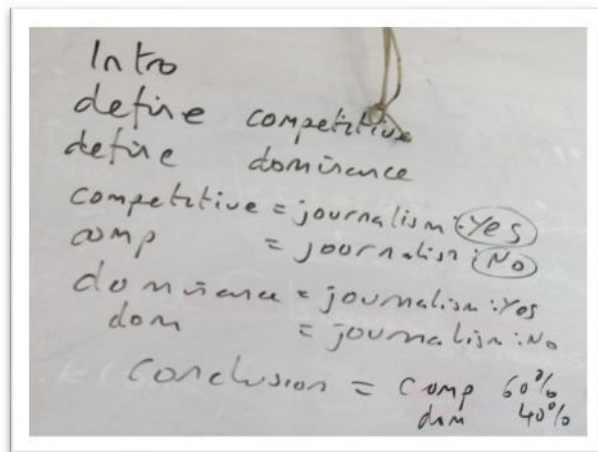 Intro
define competitive
define dominance
competitive = journalism : Yes
comp = journalism : No
dominance = journalism : Yes
dom = journalism : No
Conclusion = comp 60%
dom 40%